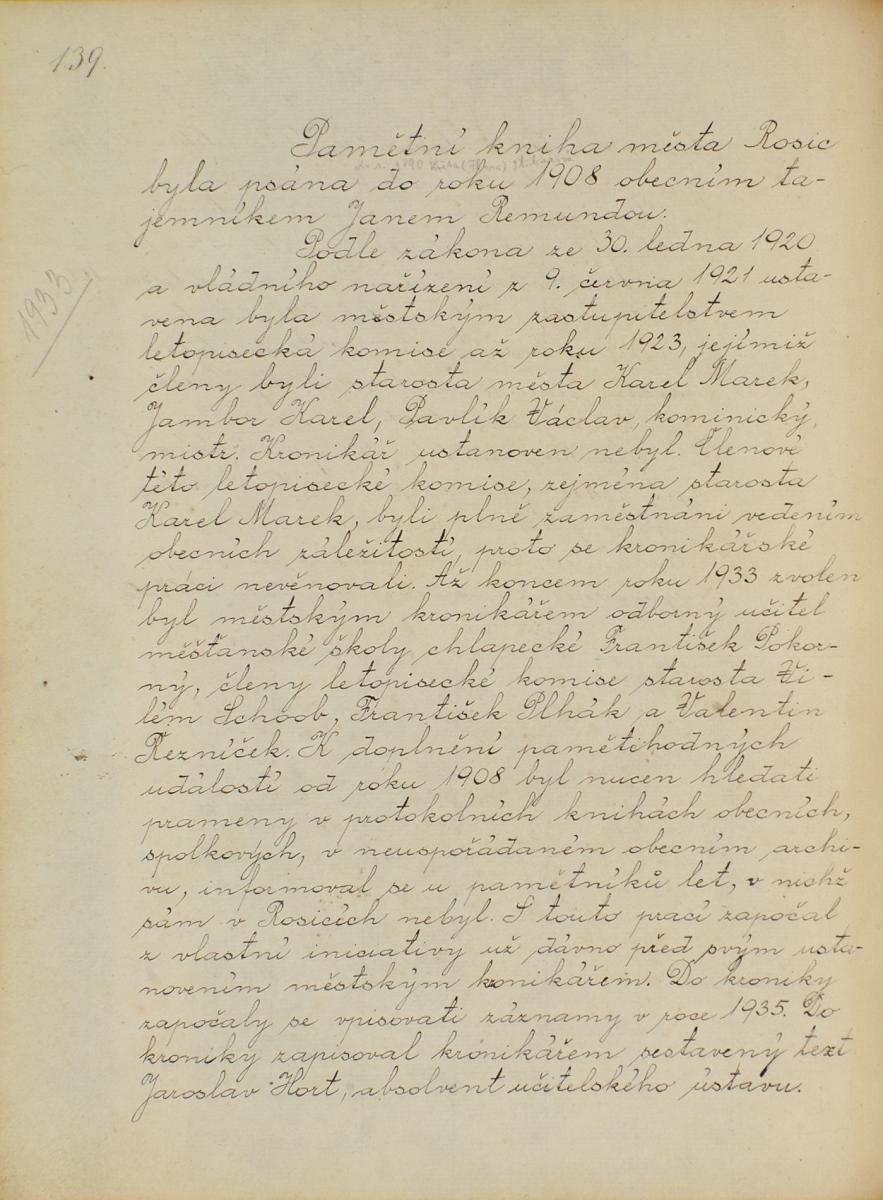 139.
Pamětní kniha města Rosic
byla psána do roku 1908 obecním ta-
jemníkem Janem Remundou.
Podle zákona ze 30. ledna 1920
1933
a vládního nařízení z 9. června 1921 usta-
vena byla městským zastupitelstvem
letopisecká komise až roku 1923, jejímiž
členy byli starosta města Karel Marek,
Jambor Karel, Pavlík Václav, kominický
mistr. Kronikář ustanoven nebyl. Členové
této letopisecké komise, zejména starosta
Karel Marek, byli plně zaměstnáni vedením
obecních záležitostí, proto se kronikářské
práci nevěnovali. Až koncem roku 1933 zvolen
byl městským kronikářem odborný učitel
měšťanské školy chlapecké František Pokor-
ný, členy letopisecké komise starosta Vi-
lém Schoob, František Plhák a Valentin
Řezníček. K doplnění pamětihodných
událostí od roku 1908 byl nucen hledati
prameny v protokolních knihách obecních,
spolkových, v neuspořádaném obecním archi-
vu, informoval se u pamětníků let, v nichž
sám v Rosicích nebyl. S touto prací započal
z vlastní iniciativy už dávno před svým usta-
novením městským kronikářem. Do kroniky
započaly se vpisovati záznamy v roce 1935. Do
kroniky zapisoval kronikářem sestavený text
Jaroslav Hort, absolvent učitelského ústavu.